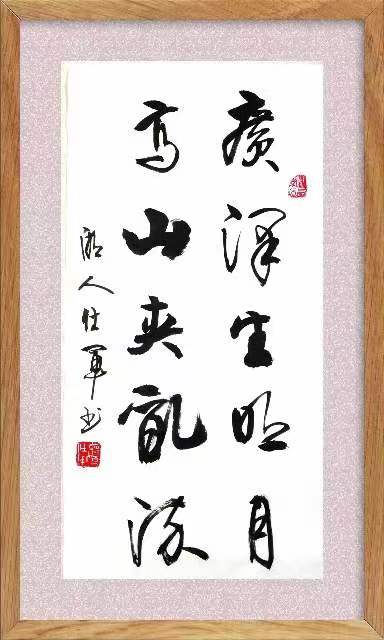 廣澤生明月
高山夾亂流
湘人仕軍书